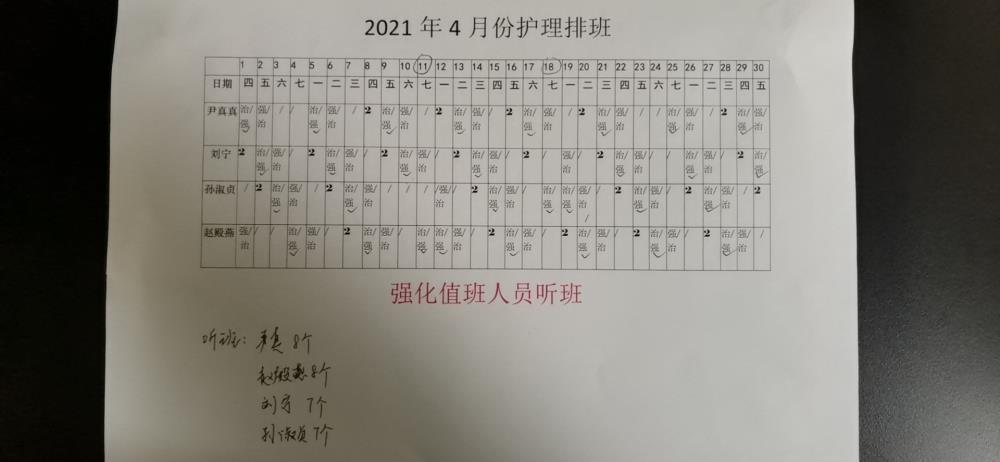 2021 年 4 月份护理排班
1 2 3 4 5 6 7 8 9 10 11 12 13 14 15 16 17 18 19 20 21 22 23 24 25 26 27 28 29 30
日期 四 五 六 七 一 二 三 四 五 六 七 一 二 三 四 五 六 七 一 二 三 四 五 六 七 一 二 三 四 五
尹真真 治/强 强/治 / / 治/强 强/治 / 2 治/强 强/治 / 2 治/强 强/治 / 2 治/强 强/治 / 2 治/强 强/治 / / 治/强 强/治 / 2 治/强 强/治
刘宁 2 治/强 强/治 / 2 治/强 强/治 / 2 治/强 强/治 / 2 治/强 强/治 / 2 / 强/治 / 2 治/强 强/治 / 2 治/强 强/治 / 2 治/强
孙淑贞 / 2 治/强 强/治 / 2 治/强 强/治 / / / /强 / 2 治/强 强/治 / 治/强 治/强 强/治/ / 2 治/强 强/治 / 2 治/强 强/治 / 2
赵殿燕 强/治 / / 治/强 强/治 / 2 治/强 强/治 / 治/强 治/强 强/治 / 2 治/强 强/治 / 2 治/强 强/治 / 2 治/强 强/治 / 2 治/强 强/治 /
强化值班人员听班
听班: 尹真 8个
赵殿燕 8个
刘宁 7个
孙淑贞 7个